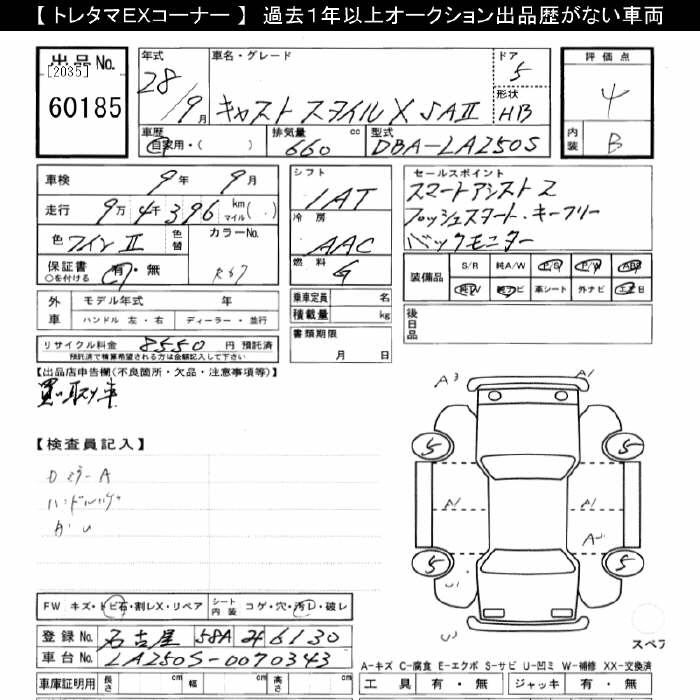 【 トレタマEXコーナー 】 過去1年以上オークション出品歴がない車両
出品No.
[2035]
60185
年式 車名・グレード ドア
28/9月 キャスト スタイル X SAⅡ 5
形状 HB
評価点 4
内装 B
車歴 自家用・( ) 排気量 660 cc 型式 DBA-LA250S
車検 9年 9月
走行 9万4千396 km マイル( . )
色 ワインⅡ 色替 カラーNo.
保証書 ○を付ける 有・無 R67
シフト IAT
冷房 AAC
燃料 G
セールスポイント
スマートアシスト2
プッシュスタート・キーフリー
バックモニター
装備品 S/R 純A/W P/S P/W ABS
純TV 純ナビ 革シート 外ナビ エアB
外車 モデル年式 年
ハンドル 左・右 ディーラー・並行
乗車定員 名
積載量 kg
後日品
リサイクル料金 8550 円 預託済
預託済で積算希望される方は金額記入して下さい
書類期限 月 日
【出品店申告欄(不良箇所・欠品・注意事項等)】
買い取り車
【検査員記入】
A3 A1
5 5
A1 A1
5 5
FW キズ・トビ石・割レX・リペア シート内装 コゲ・穴・汚レ・破レ
登録No. 名古屋 58A そ 6130
車台No. LA250S-0070343
スペア
A-キズ C-腐食 E-エクボ S-サビ U-凹ミ W-補修 XX-交換済
車庫証明用 長さ cm 幅 cm 高さ cm
工具 有・無 ジャッキ 有・無